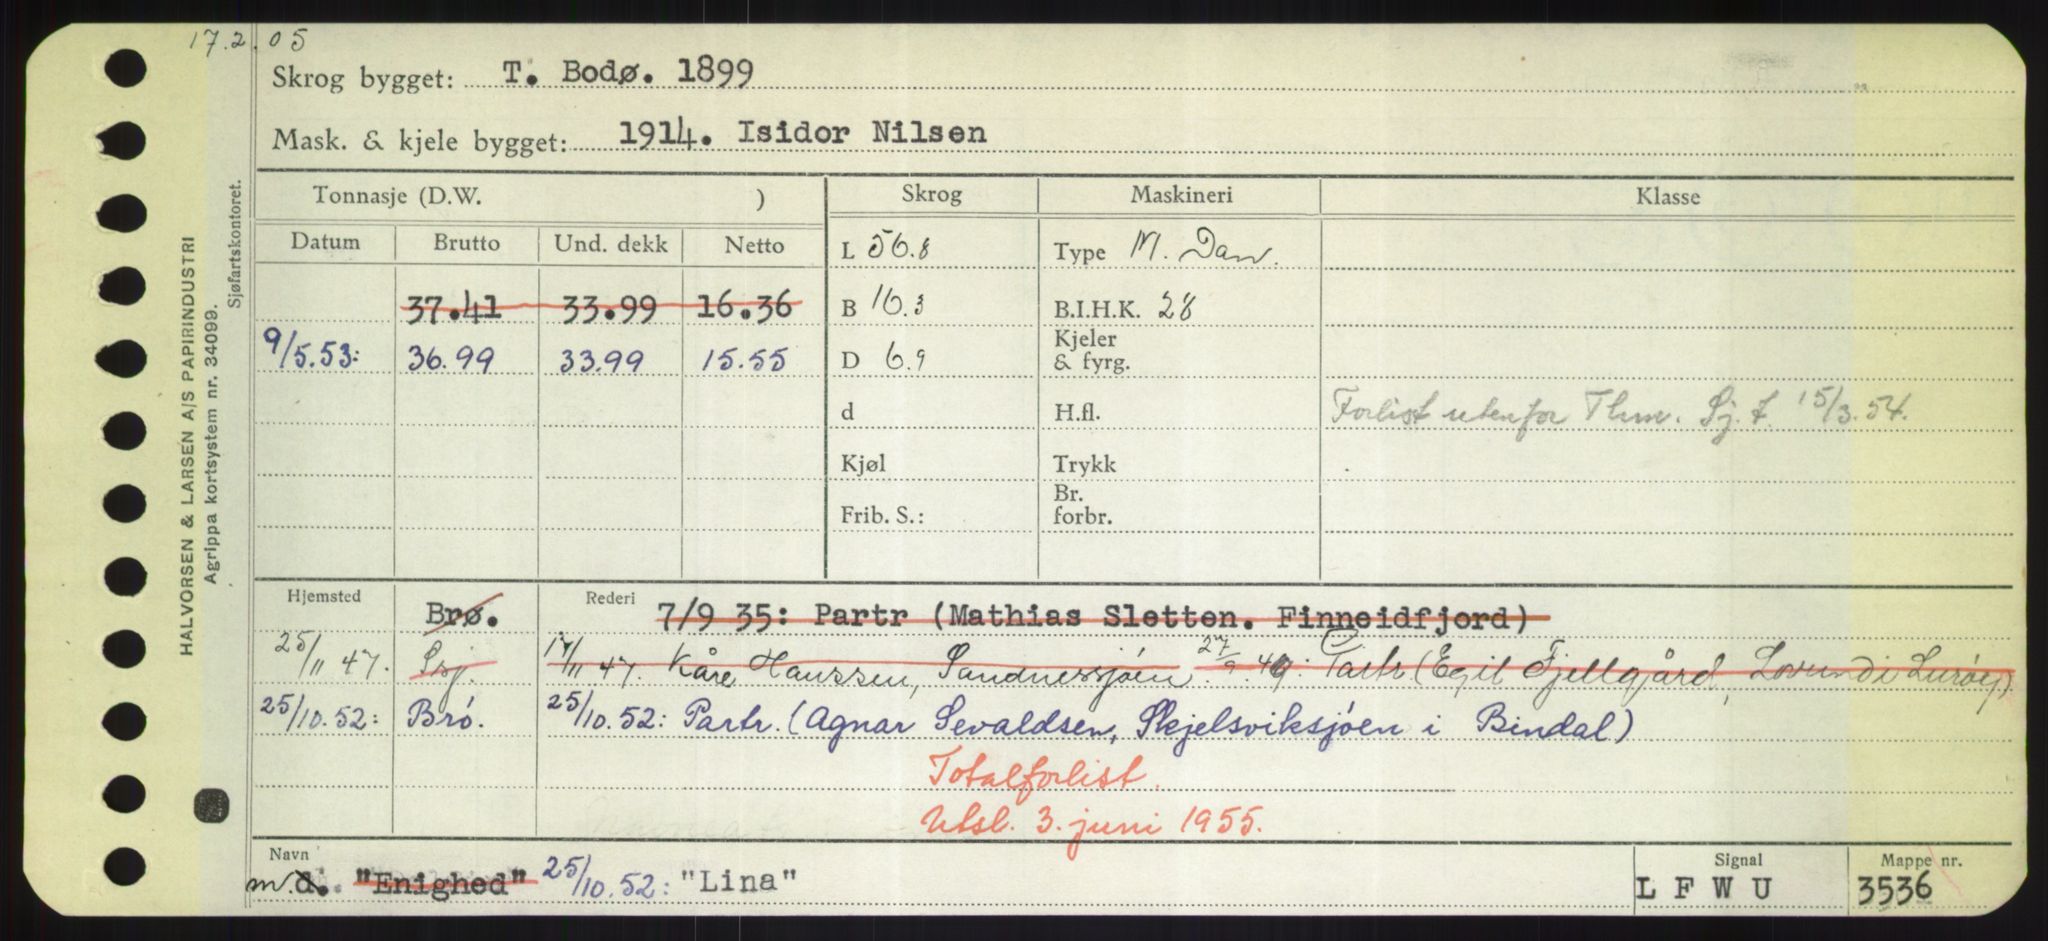 17.2.05
Skrog bygget: T. Bodø. 1899
Mask. & kjele bygget: 1914. Isidor Nilsen
Tonnasje (D.W. ) Skrog Maskineri Klasse
Datum Brutto Und. dekk Netto L 56.8 Type M. Dan.
37.41 33.99 16.36 B 16.3 B.I.H.K. 28
9/5.53: 36.99 33.99 15.55 D 6.9 Kjeler & fyrg.
d H.fl. Forlist utenfor Thm. Sj.f. 15/3.54.
Kjøl Trykk
Frib. S.: Br. forbr.
Hjemsted Brø. Rederi 7/9 35: Partr (Mathias Sletten. Finneidfjord)
25/11 47. Ssj. 17/11 47. Kåre Hanssen, Sandnessjøen. 27/9.49: Partr (Egil Fjellgård, Lovund i Lurøy)
25/10.52: Brø. 25/10.52: Partr. (Agnar Sevaldsen, Skjelsviksjøen i Bindal)
Totalforlist.
Utsl. 3. juni 1955.
Navn Signal Mappe nr.
m. d. "Enighed" 25/10.52: "Lina" L F W U 3536
HALVORSEN & LARSEN A/S PAPIRINDUSTRI
Agrippa kortsystem nr. 34099.
Sjøfartskontoret.